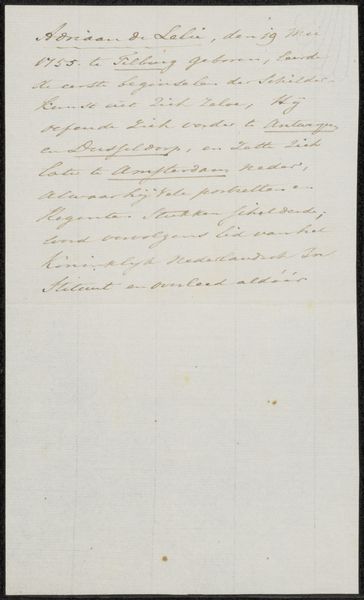 Adriaan de Lelie, den 19 Mei
1755 te Tilburg geboren, leerde
de eerste beginselen der Schilder
kunst uit Zich Zelve, Hij
oefende Zich verder te Antwerpen
en Dusseldorp, en Zette Zich
later te Amsterdam neder,
alwaar hij vele portretten en
Regenten Stukken schilderde;
werd vervolgens lid van het
Koninklijk Nederlandsch In
Stituut en overleed aldáár